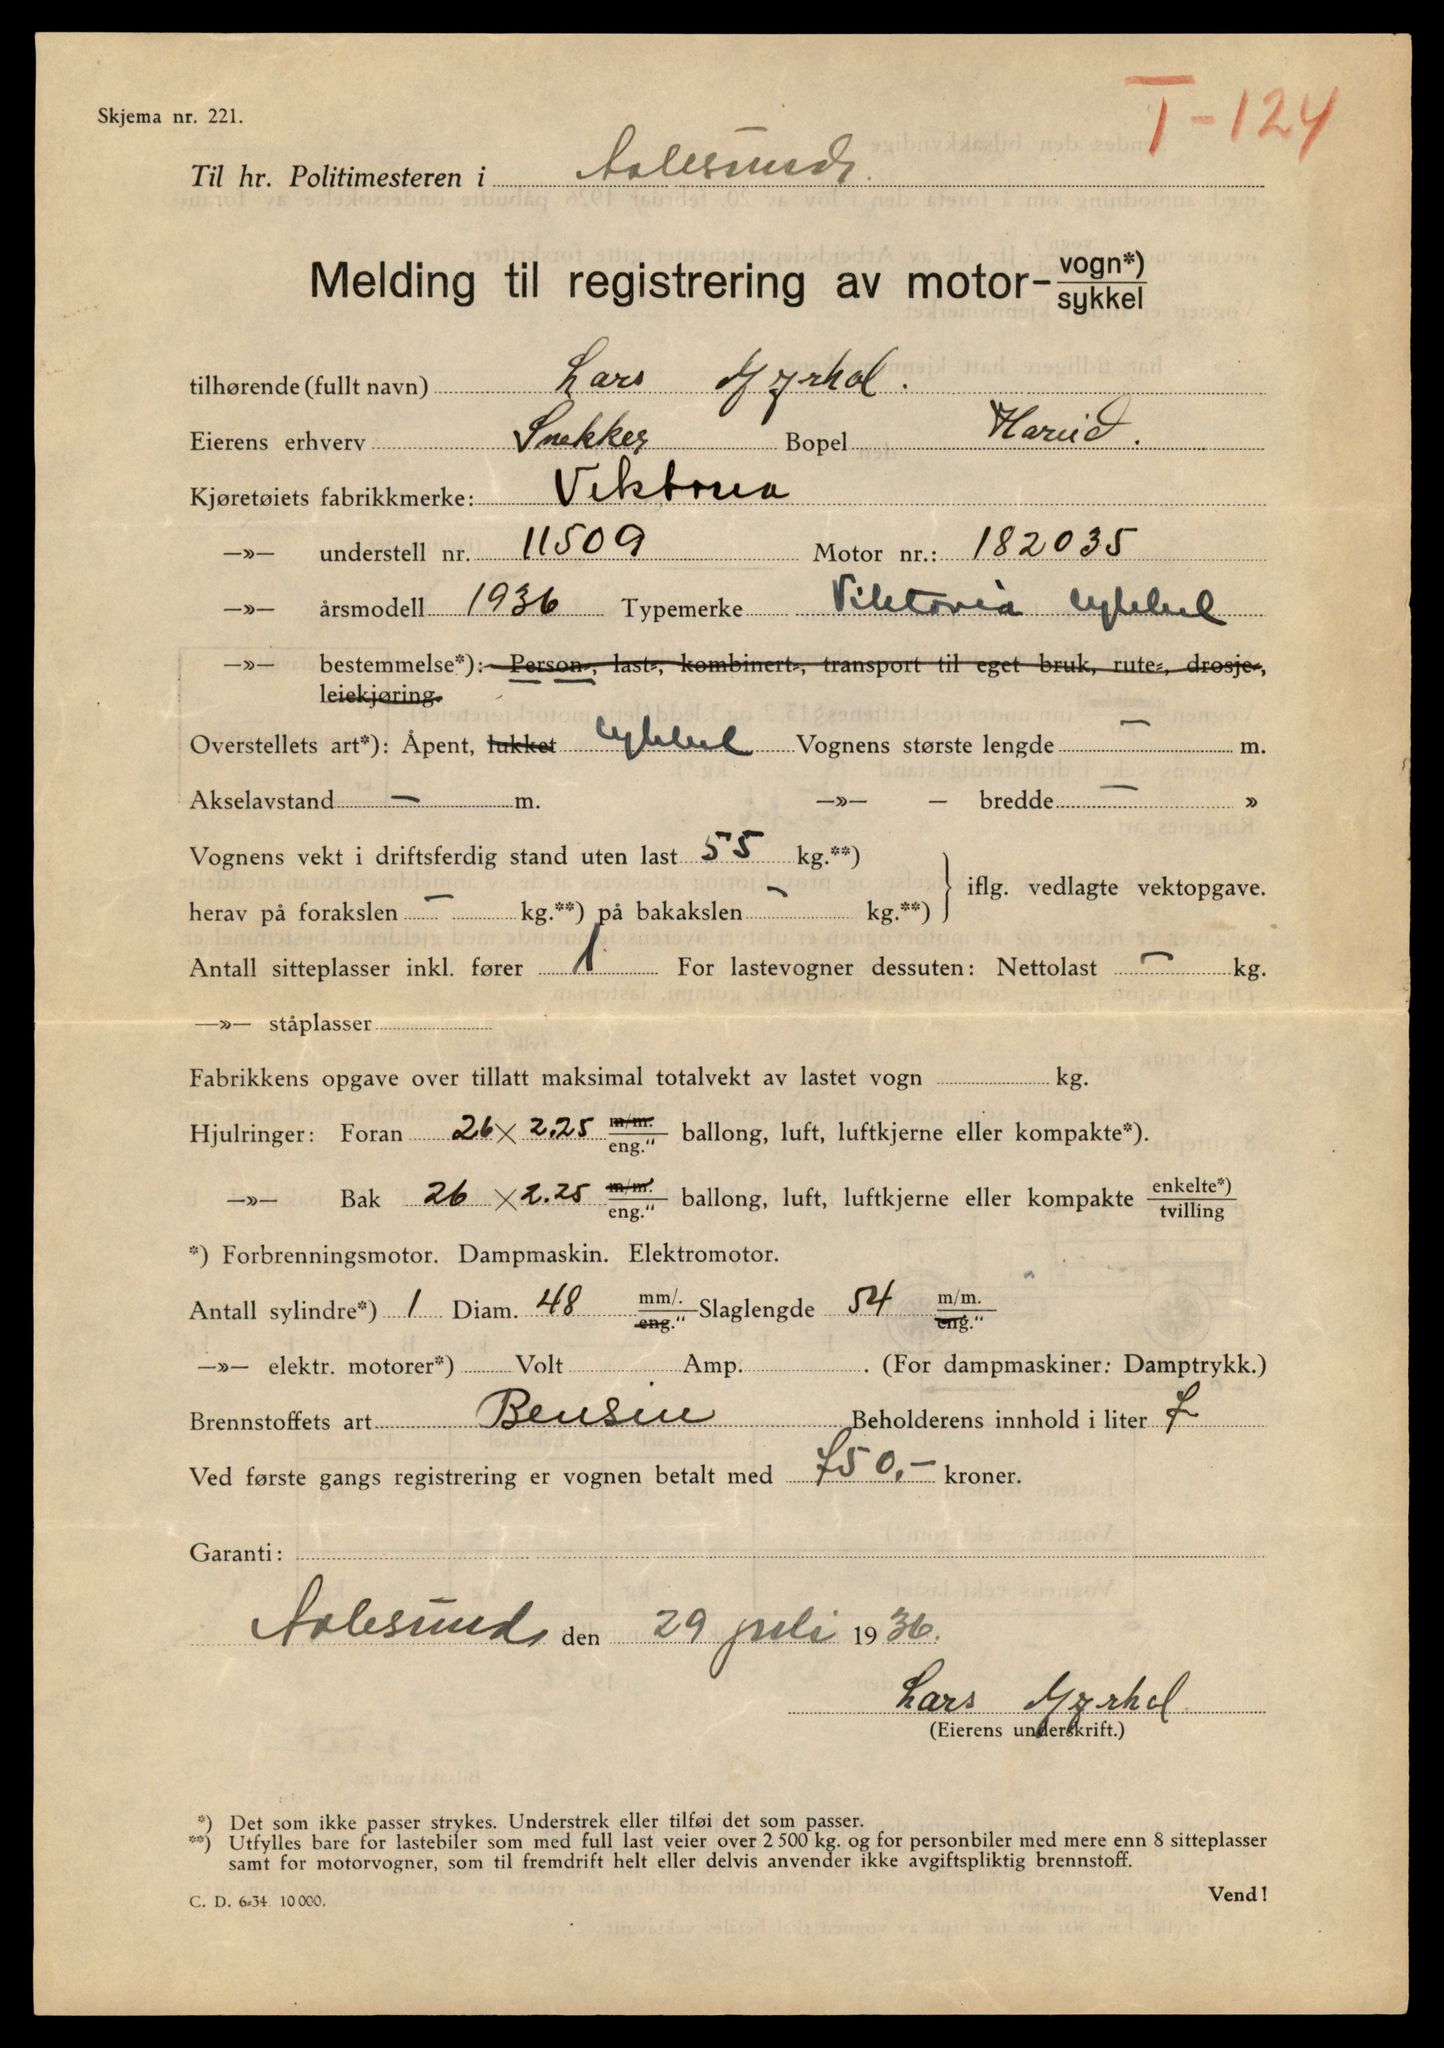 T-124
Skjema nr. 221.
Til hr. Politimesteren i Aalesund.
Melding til registrering av motor- vogn*) sykkel
tilhørende (fullt navn) Lars Myrhol.
Eierens erhverv Snekker Bopel Hareid.
Kjøretøiets fabrikkmerke: Viktoria
—»— understell nr. 11509 Motor nr.: 182035
—»— årsmodell 1936 Typemerke Viktoria sykkel
—»— bestemmelse*): Person-, last-, kombinert-, transport til eget bruk, rute-, drosje-,
leiekjøring.
Overstellets art*): Åpent, lukket sykkel Vognens største lengde — m.
Akselavstand — m. —»— — bredde — »
Vognens vekt i driftsferdig stand uten last 55 kg.**)
herav på forakslen — kg.**) på bakakslen — kg.**) } iflg. vedlagte vektopgave.
Antall sitteplasser inkl. fører 1 For lastevogner dessuten: Nettolast — kg.
—»— ståplasser
Fabrikkens opgave over tillatt maksimal totalvekt av lastet vogn kg.
Hjulringer: Foran 26 × 2.25 m/m. eng." ballong, luft, luftkjerne eller kompakte*).
—»— Bak 26 × 2.25 m/m. eng." ballong, luft, luftkjerne eller kompakte enkelte*) tvilling
*) Forbrenningsmotor. Dampmaskin. Elektromotor.
Antall sylindre*) 1 Diam. 48 mm/. eng." Slaglengde 54 m/m. eng."
—»— elektr. motorer*) Volt Amp. . (For dampmaskiner: Damptrykk.)
Brennstoffets art Bensin Beholderens innhold i liter 7
Ved første gangs registrering er vognen betalt med 750,— kroner.
Garanti:
Aalesund den 29 juli 1936.
Lars Myrhol
(Eierens underskrift.)
*) Det som ikke passer strykes. Understrek eller tilføi det som passer.
**) Utfylles bare for lastebiler som med full last veier over 2 500 kg. og for personbiler med mere enn 8 sitteplasser
samt for motorvogner, som til fremdrift helt eller delvis anvender ikke avgiftspliktig brennstoff.
C. D. 6-34. 10 000.
Vend!